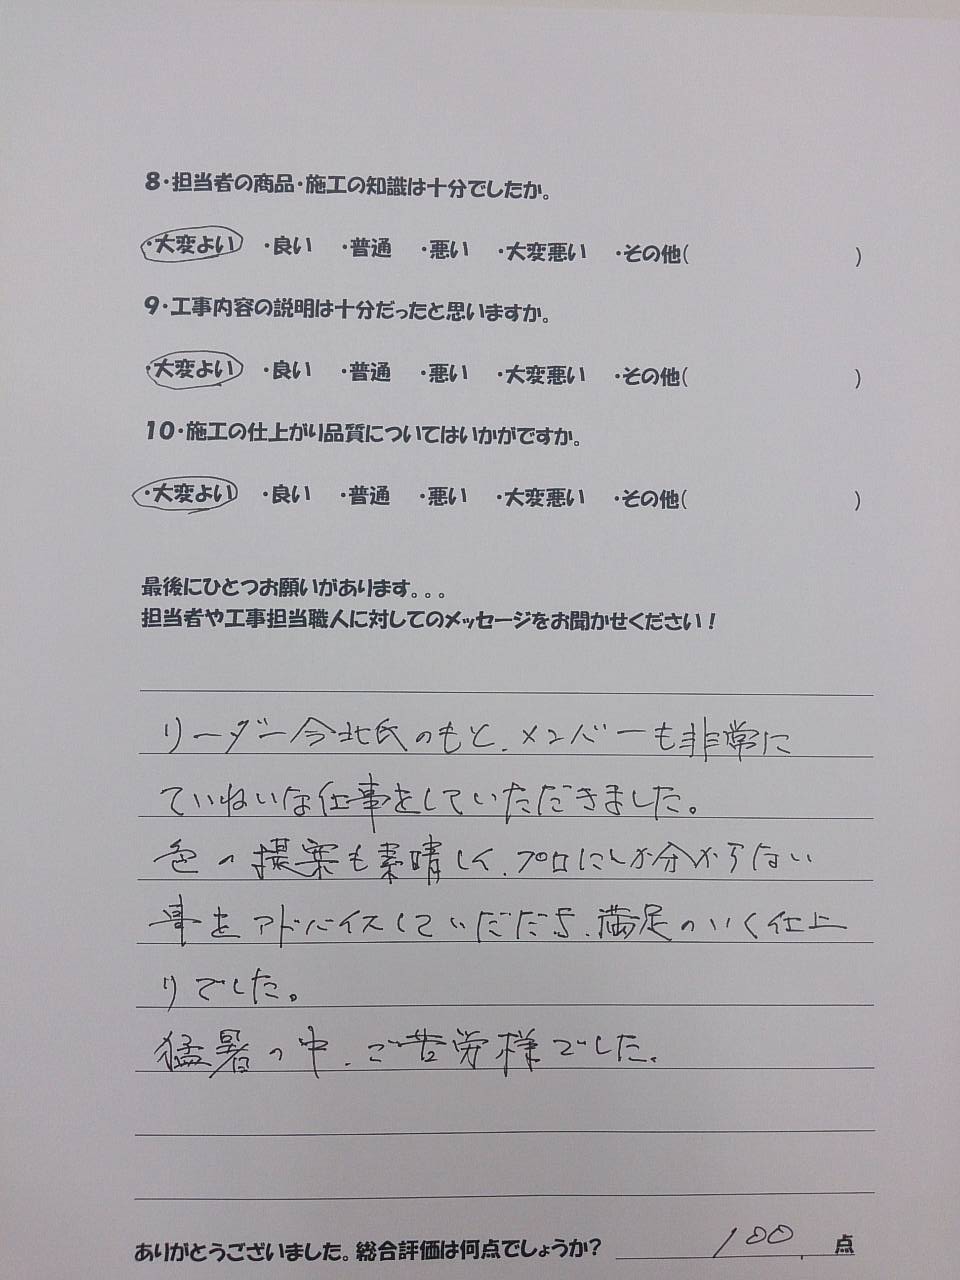 8・担当者の商品・施工の知識は十分でしたか。
・大変よい ・良い ・普通 ・悪い ・大変悪い ・その他( )
9・工事内容の説明は十分だったと思いますか。
・大変よい ・良い ・普通 ・悪い ・大変悪い ・その他( )
10・施工の仕上がり品質についてはいかがですか。
・大変よい ・良い ・普通 ・悪い ・大変悪い ・その他( )
最後にひとつお願いがあります。。。
担当者や工事担当職人に対してのメッセージをお聞かせください！
リーダー今北氏のもと、メンバーも非常に
ていねいな仕事をしていただきました。
色の提案も素晴しく、プロにしか分からない
事をアドバイスしていただき、満足のいく仕上
りでした。
猛暑の中、ご苦労様でした。
ありがとうございました。総合評価は何点でしょうか？ 100 点